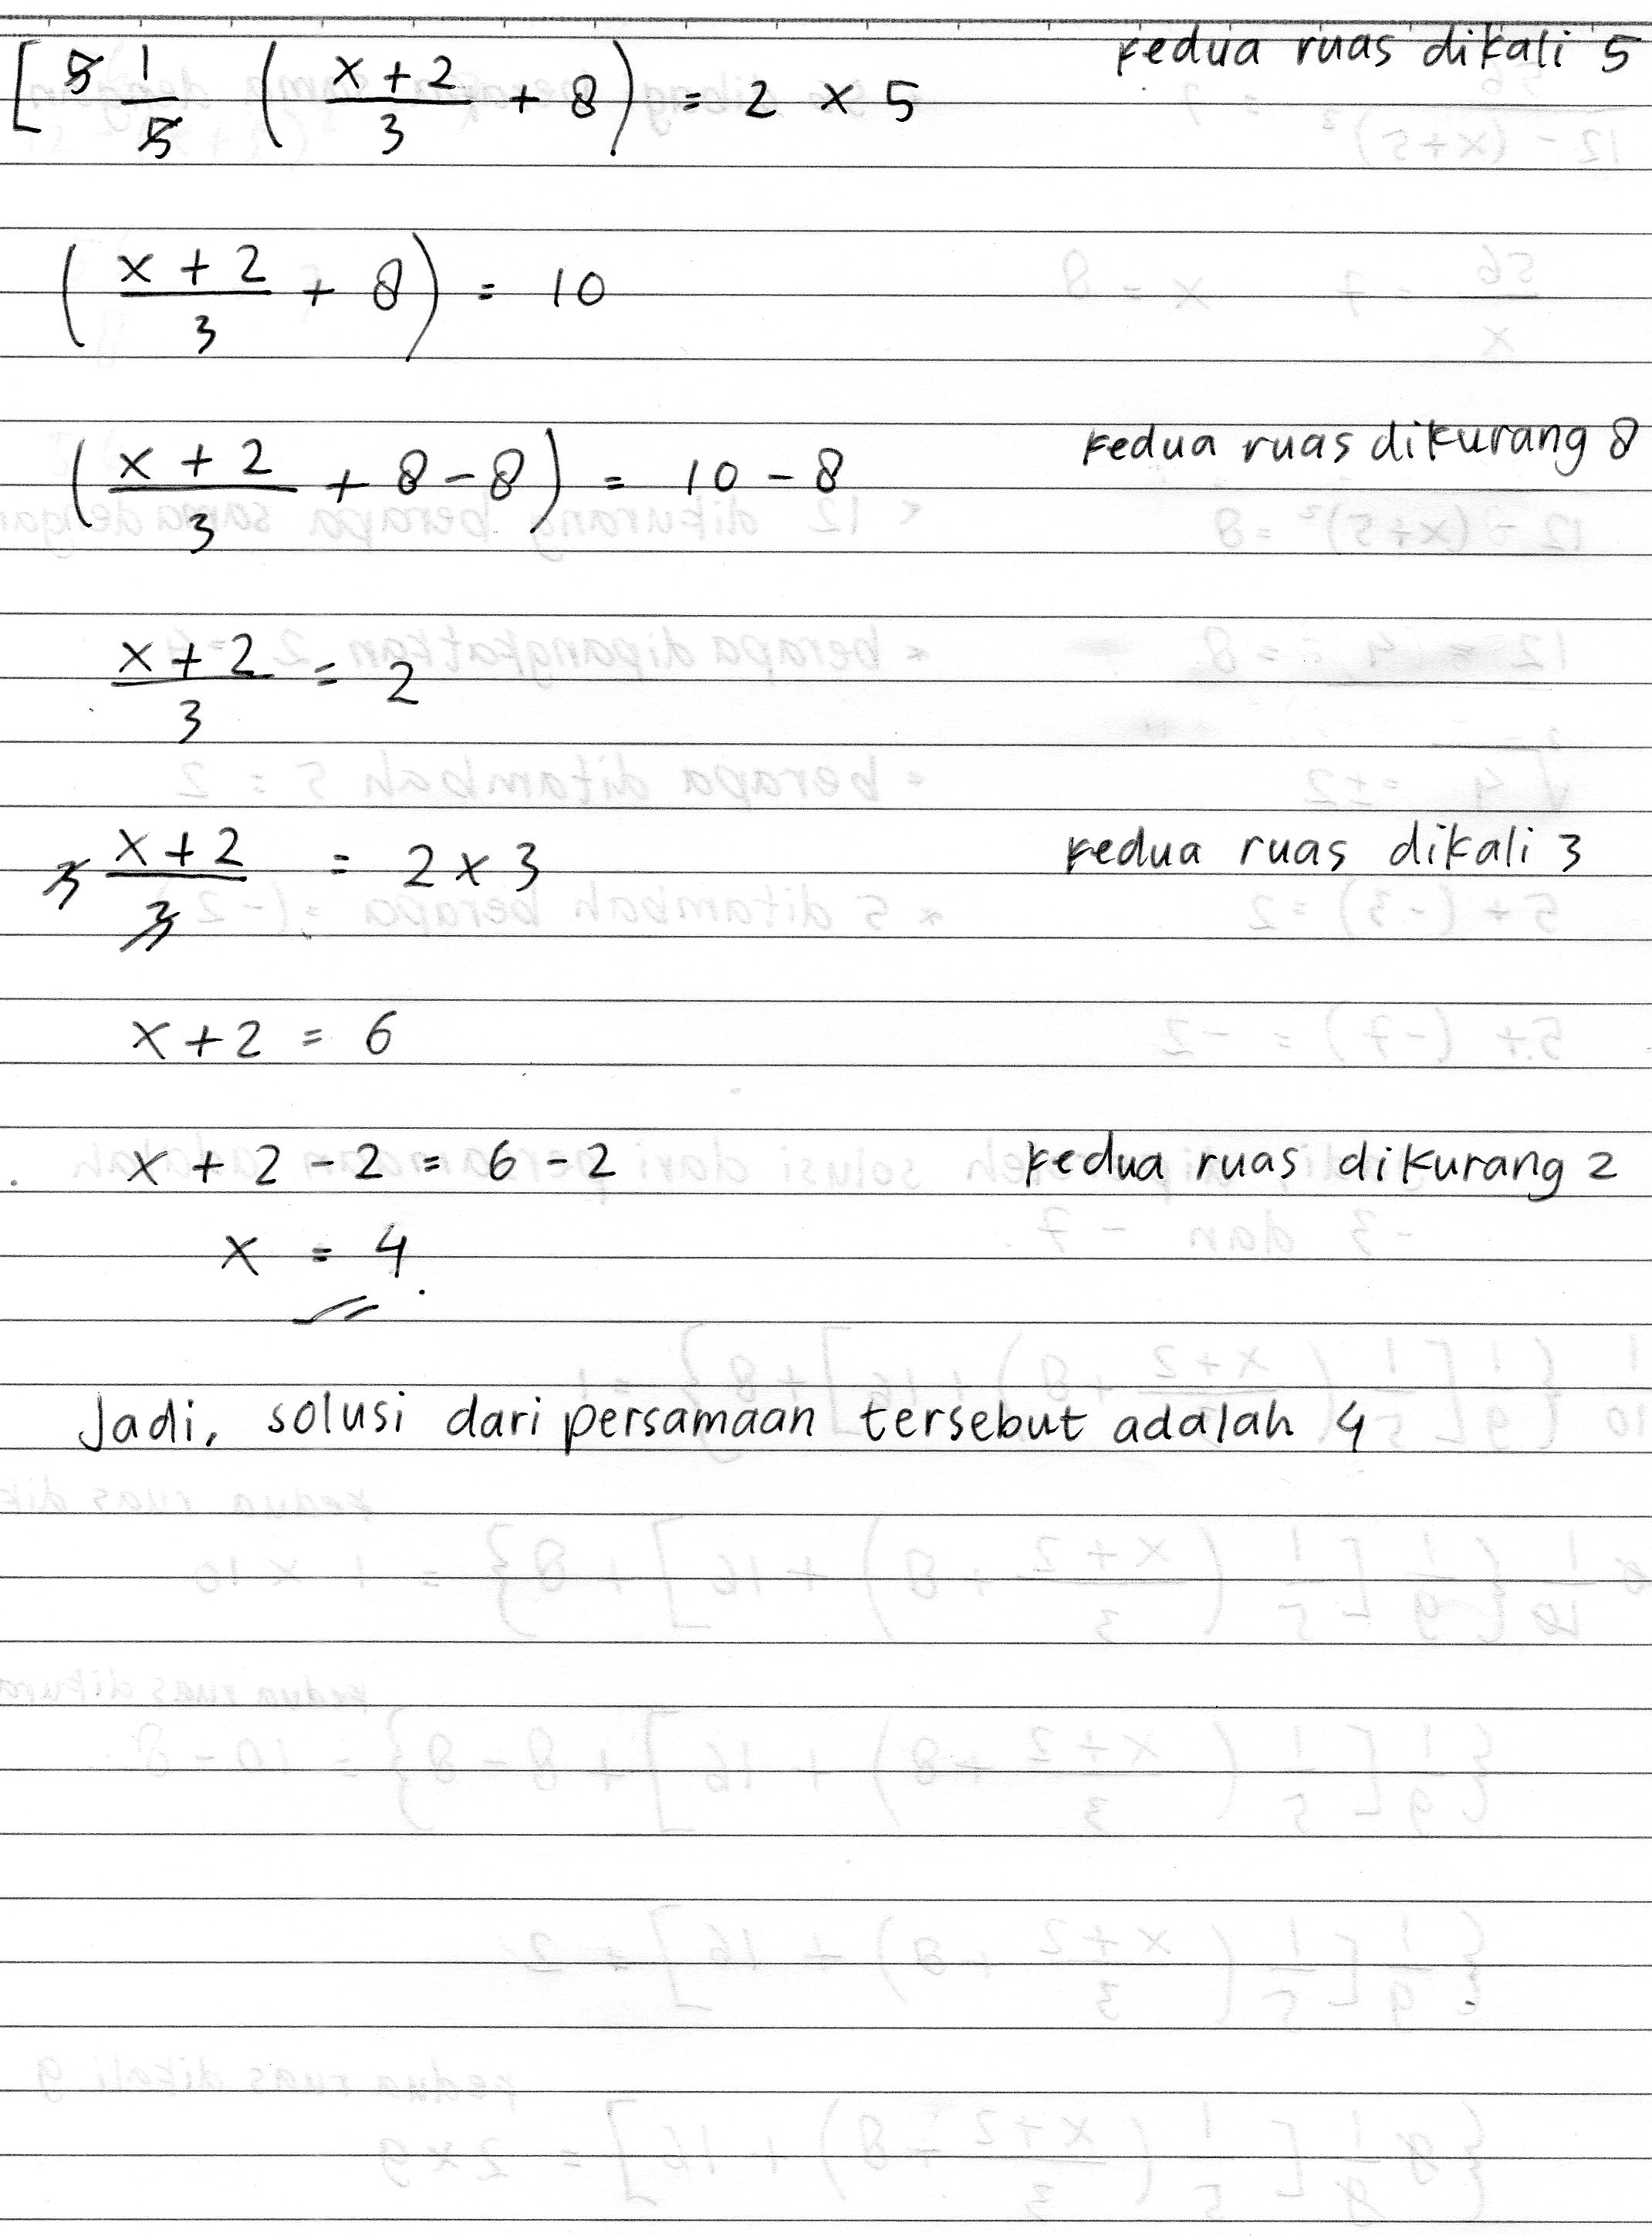 [ 5 1/5 ( (x + 2)/3 + 8 ) = 2 × 5 kedua ruas dikali 5
( (x + 2)/3 + 8 ) = 10
( (x + 2)/3 + 8 - 8 ) = 10 - 8 kedua ruas dikurang 8
(x + 2)/3 = 2
3 (x + 2)/3 = 2 x 3 kedua ruas dikali 3
x + 2 = 6
x + 2 - 2 = 6 - 2 kedua ruas dikurang 2
x = 4.
Jadi, solusi dari persamaan tersebut adalah 4